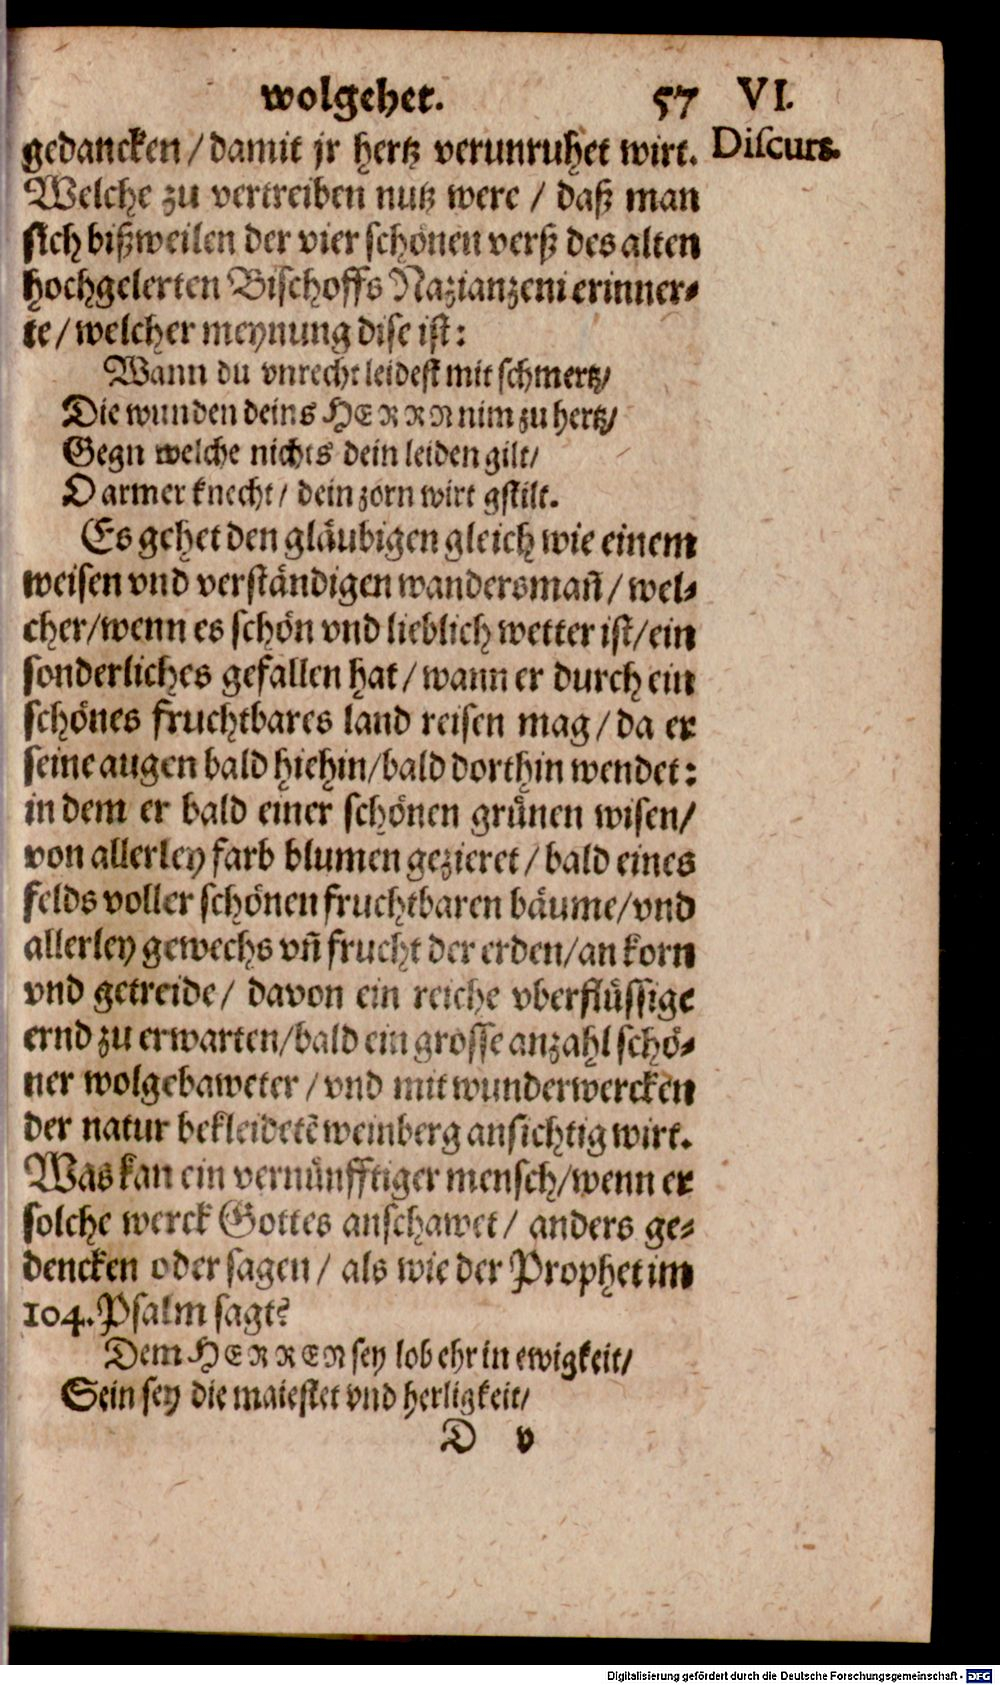 wolgehet. 57 VI.
gedancken / damit jr hertz verunruhet wirt. Discurs.
Welche zu vertreiben nutz were / daß man
sich bißweilen der vier schönen verß des alten
hochgelerten Bischoffs Nazianzeni erinner⸗
te / welcher meynung dise ist:
Wann du vnrecht leidest mit schmertz/
Die wunden deins HERRN nim zu hertz/
Gegn welche nichts dein leiden gilt/
O armer knecht / dein zorn wirt gstilt.
Es gehet den gläubigen gleich wie einem
weisen vnd verständigen wandersmañ / wel⸗
cher/wenn es schön vnd lieblich wetter ist/ein
sonderliches gefallen hat / wann er durch ein
schönes fruchtbares land reisen mag / da er
seine augen bald hiehin/bald dorthin wendet:
in dem er bald einer schönen grünen wisen/
von allerley farb blumen gezieret / bald eines
felds voller schönen fruchtbaren bäume/vnd
allerley gewechs vñ frucht der erden/an korn
vnd getreide / davon ein reiche vberflüssige
ernd zu erwarten/bald ein grosse anzahl schö⸗
ner wolgebaweter / vnd mit wunderwercken
der natur bekleidetẽ weinberg ansichtig wirt.
Was kan ein vernünfftiger mensch/wenn er
solche werck Gottes anschawet / anders ge⸗
dencken oder sagen / als wie der Prophet im
104. Psalm sagt?
Dem HERREN sey lob ehr in ewigkeit/
Sein sey die maiestet vnd herligkeit/
D v
Digitalisierung gefördert durch die Deutsche Forschungsgemeinschaft - DFG